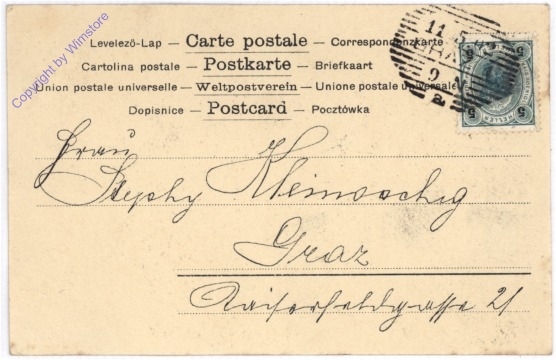 Levelező-Lap — Carte postale — Correspondenzkarte
Cartolina postale — Postkarte — Briefkaart
Union postale universelle — Weltpostverein — Unione postale universale
Dopisnice — Postcard — Pocztówka
Copyright by Wimstore
11 5
GRAZ
9 V
2a
5 5
HELLER
5 5
Frau
Stephy Kleinoschig
Graz
Kaiserfeldgasse 21